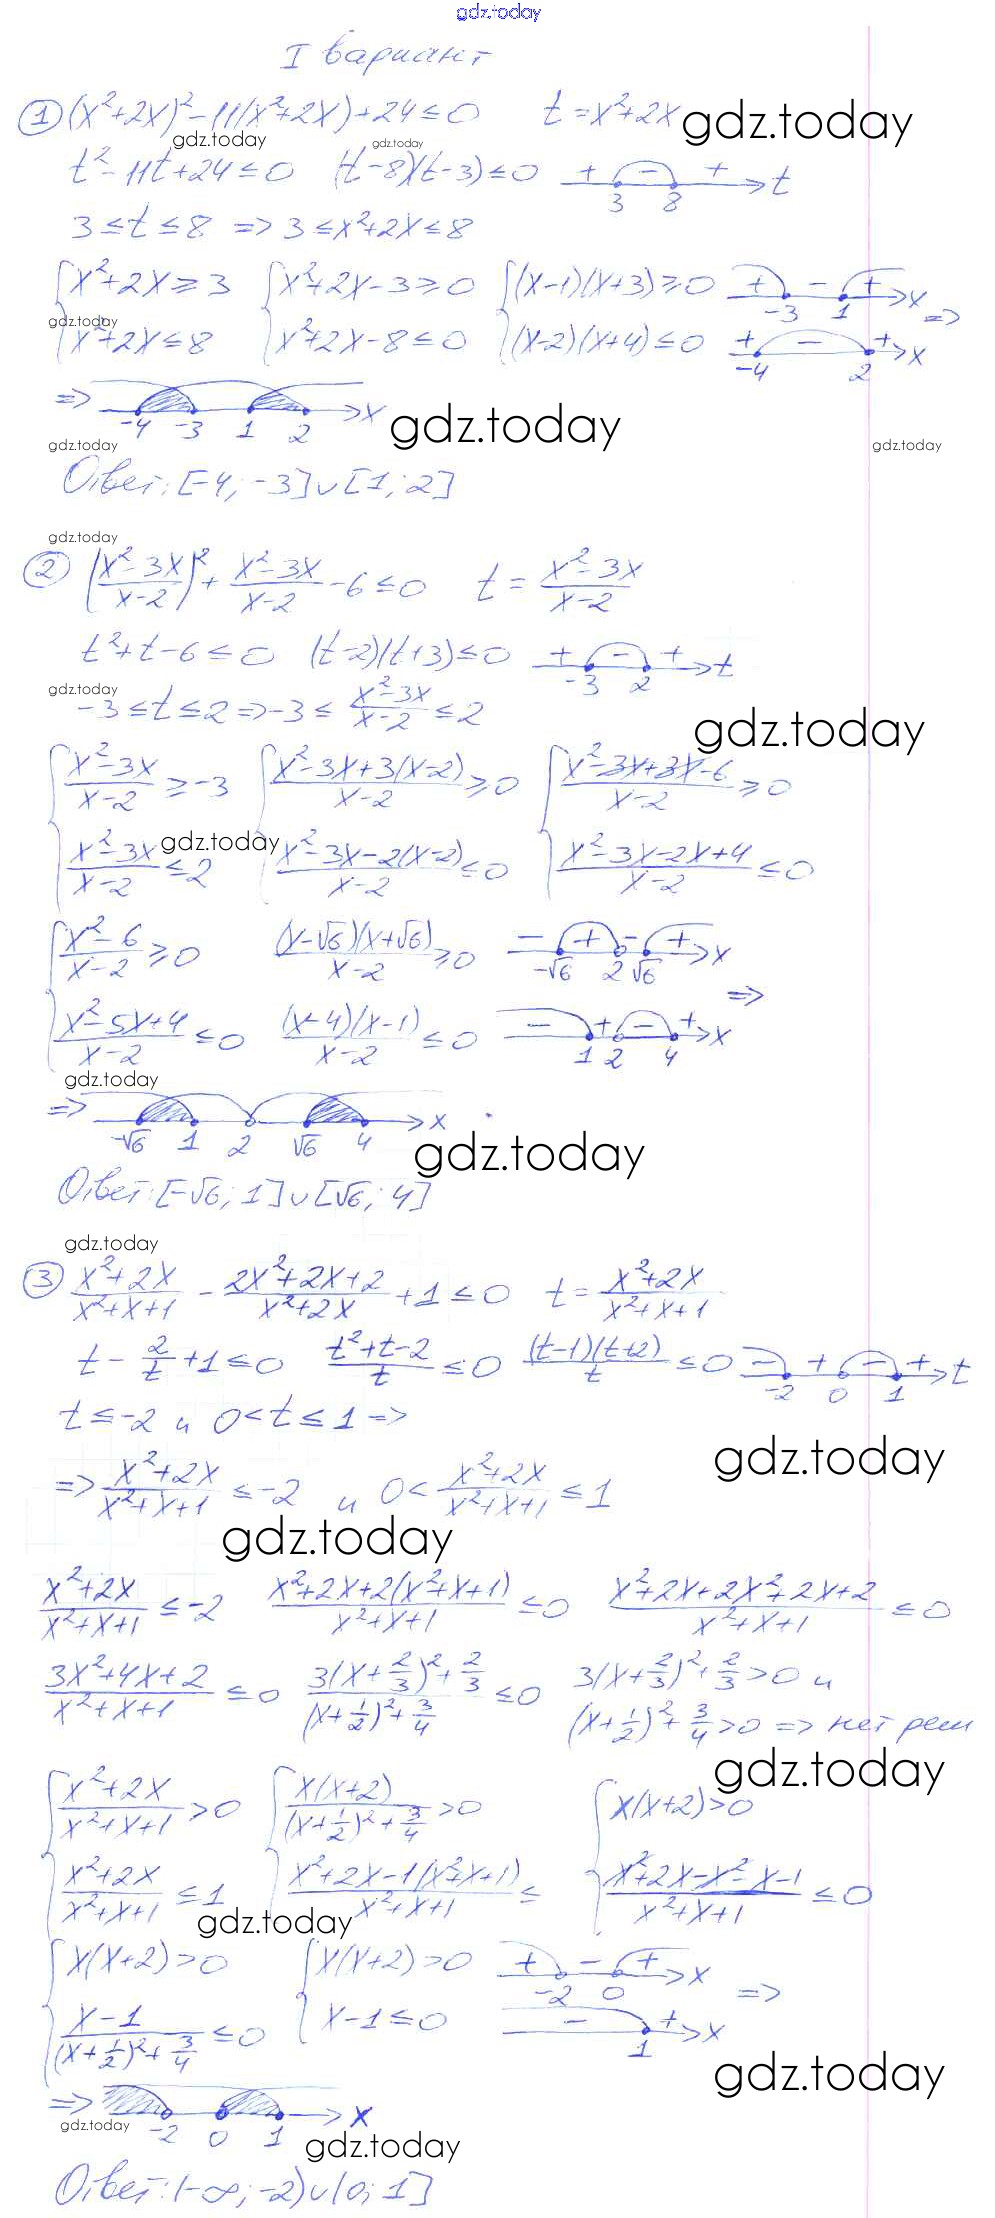 gdz.today
I вариант
① (x²+2x)²-11(x²+2x)+24≤0 t=x²+2x gdz.today
gdz.today gdz.today
t²-11t+24≤0 (t-8)(t-3)≤0 + - + t
3 8
3≤t≤8 => 3≤x²+2x≤8
{x²+2x≥3 {x²+2x-3≥0 {(x-1)(x+3)≥0 + - + x
-3 1 =>
gdz.today
x²+2x≤8 x²+2x-8≤0 (x-2)(x+4)≤0 + - + x
-4 2
=> x
-4 -3 1 2
gdz.today
gdz.today gdz.today
Ответ: [-4; -3]∪[1; 2]
gdz.today
② ((x²-3x)/(x-2))² + (x²-3x)/(x-2) - 6≤0 t = (x²-3x)/(x-2)
t²+t-6≤0 (t-2)(t+3)≤0 + - + t
-3 2
gdz.today
-3≤t≤2 => -3≤ (x²-3x)/(x-2) ≤2
gdz.today
{(x²-3x)/(x-2) ≥-3 {(x²-3x+3(x-2))/(x-2) ≥0 {(x²-3x+3x-6)/(x-2) ≥0
gdz.today
(x²-3x)/(x-2) ≤2 (x²-3x-2(x-2))/(x-2) ≤0 (x²-3x-2x+4)/(x-2) ≤0
{(x²-6)/(x-2) ≥0 ((x-√6)(x+√6))/(x-2) ≥0 - + - + x
-√6 2 √6
=>
(x²-5x+4)/(x-2) ≤0 ((x-4)(x-1))/(x-2) ≤0 - + - + x
1 2 4
gdz.today
=> x
-√6 1 2 √6 4
gdz.today
Ответ: [-√6; 1]∪[√6; 4]
gdz.today
③ (x²+2x)/(x²+x+1) - (2x²+2x+2)/(x²+2x) +1≤0 t= (x²+2x)/(x²+x+1)
t - 2/t +1≤0 (t²+t-2)/t ≤0 ((t-1)(t+2))/t ≤0 - + - + t
-2 0 1
t≤-2 и 0<t≤1 =>
gdz.today
=> (x²+2x)/(x²+x+1) ≤-2 и 0< (x²+2x)/(x²+x+1) ≤1
gdz.today
(x²+2x)/(x²+x+1) ≤-2 (x²+2x+2(x²+x+1))/(x²+x+1) ≤0 (x²+2x+2x²+2x+2)/(x²+x+1) ≤0
(3x²+4x+2)/(x²+x+1) ≤0 (3(x+2/3)²+2/3)/((x+1/2)²+3/4) ≤0 3(x+2/3)²+2/3>0 и
(x+1/2)²+3/4>0 => нет реш
gdz.today
{(x²+2x)/(x²+x+1) >0 {(x(x+2))/((x+1/2)²+3/4) >0 {x(x+2)>0
(x²+2x)/(x²+x+1) ≤1 (x²+2x-1(x²+x+1))/(x²+x+1) ≤ (x²+2x-x²-x-1)/(x²+x+1) ≤0
gdz.today
{x(x+2)>0 {x(x+2)>0 + - + x
-2 0 =>
(x-1)/((x+1/2)²+3/4) ≤0 x-1≤0 - + x
1
gdz.today
=> x
-2 0 1
gdz.today
gdz.today
Ответ: (-∞; -2)∪(0; 1]